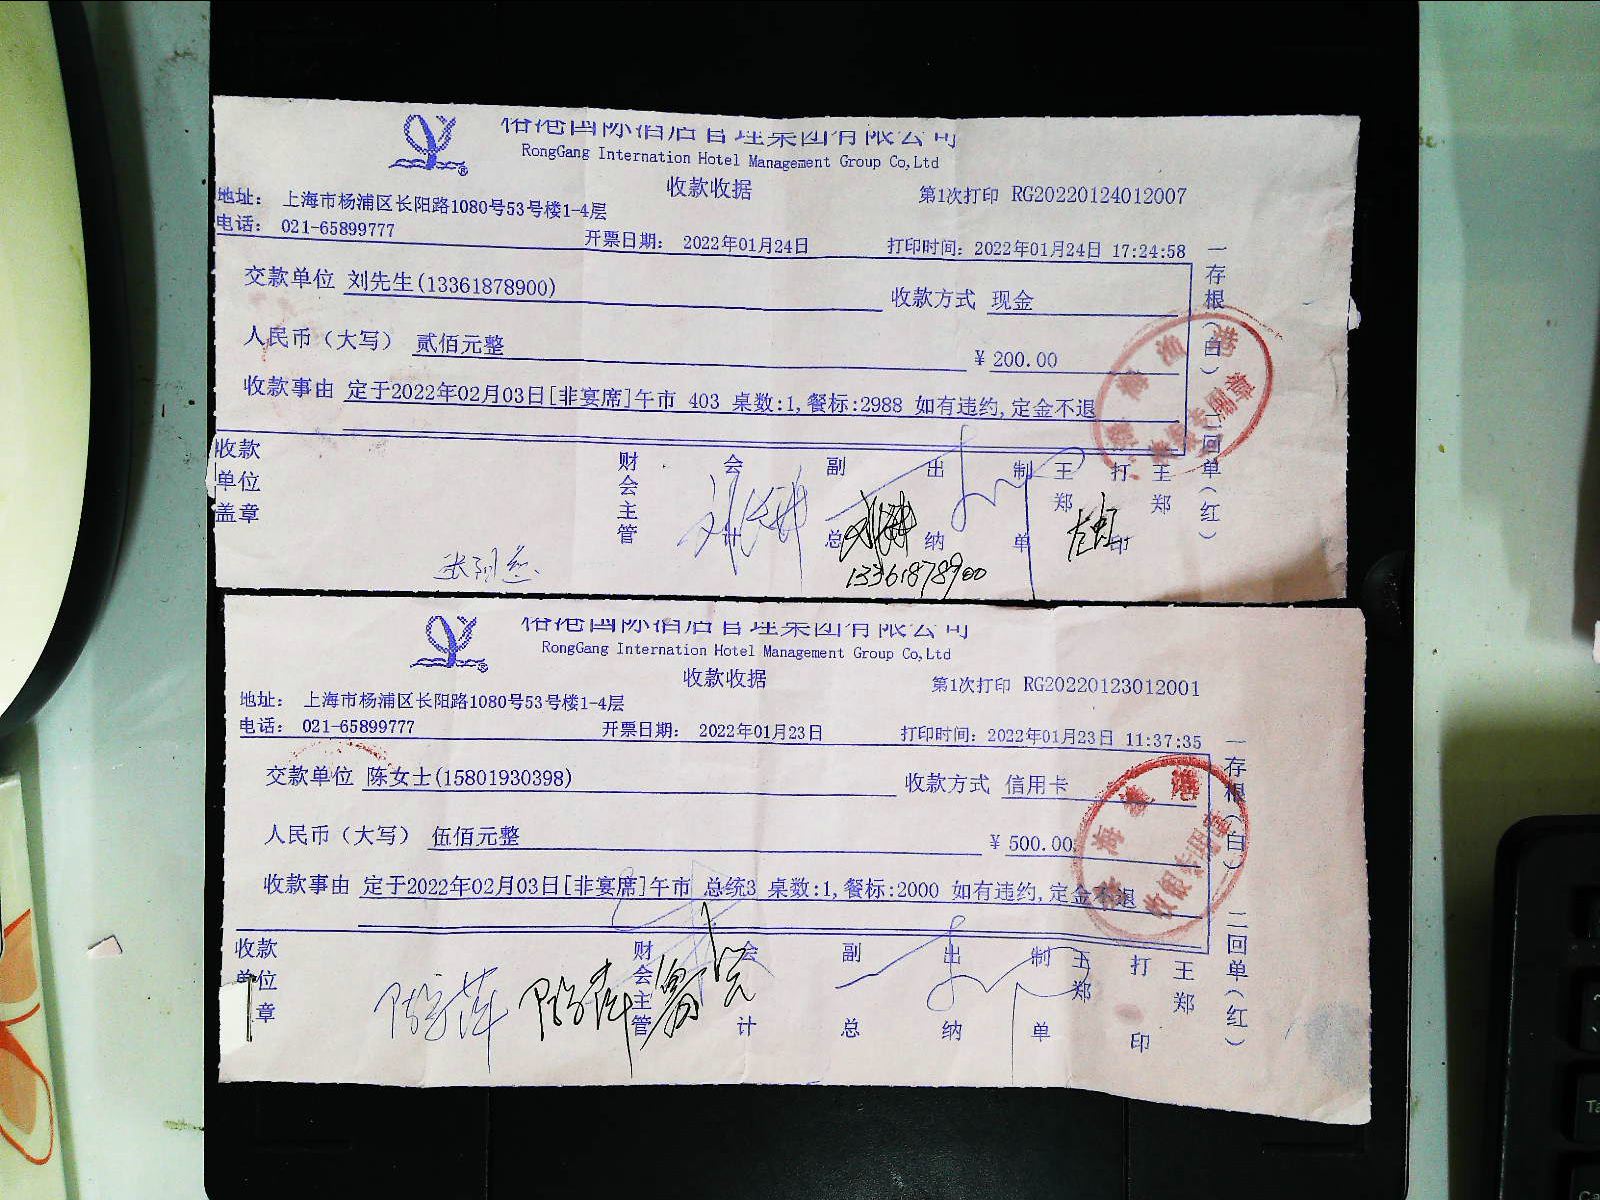 榕港国际酒店管理集团有限公司
RongGang Internation Hotel Management Group Co,Ltd
收款收据
第1次打印 RG20220124012007
地址： 上海市杨浦区长阳路1080号53号楼1-4层
电话： 021-65899777
开票日期： 2022年01月24日
打印时间：2022年01月24日 17:24:58
交款单位 刘先生(13361878900)
收款方式 现金
人民币（大写） 贰佰元整
¥ 200.00
收款事由 定于2022年02月03日[非宴席]午市 403 桌数:1,餐标:2988 如有违约,定金不退
一存根（白） 二回单（红）
收款单位盖章
财会主管
会计
副总
出纳
制单
王郑
打印
王郑
13361878900
榕港国际酒店管理集团有限公司
RongGang Internation Hotel Management Group Co,Ltd
收款收据
第1次打印 RG20220123012001
地址： 上海市杨浦区长阳路1080号53号楼1-4层
电话： 021-65899777
开票日期： 2022年01月23日
打印时间：2022年01月23日 11:37:35
交款单位 陈女士(15801930398)
收款方式 信用卡
人民币（大写） 伍佰元整
¥ 500.00
收款事由 定于2022年02月03日[非宴席]午市 总统3 桌数:1,餐标:2000 如有违约,定金不退
一存根（白） 二回单（红）
收款单位章
财会主管
会计
副总
出纳
制单
王郑
打印
王郑